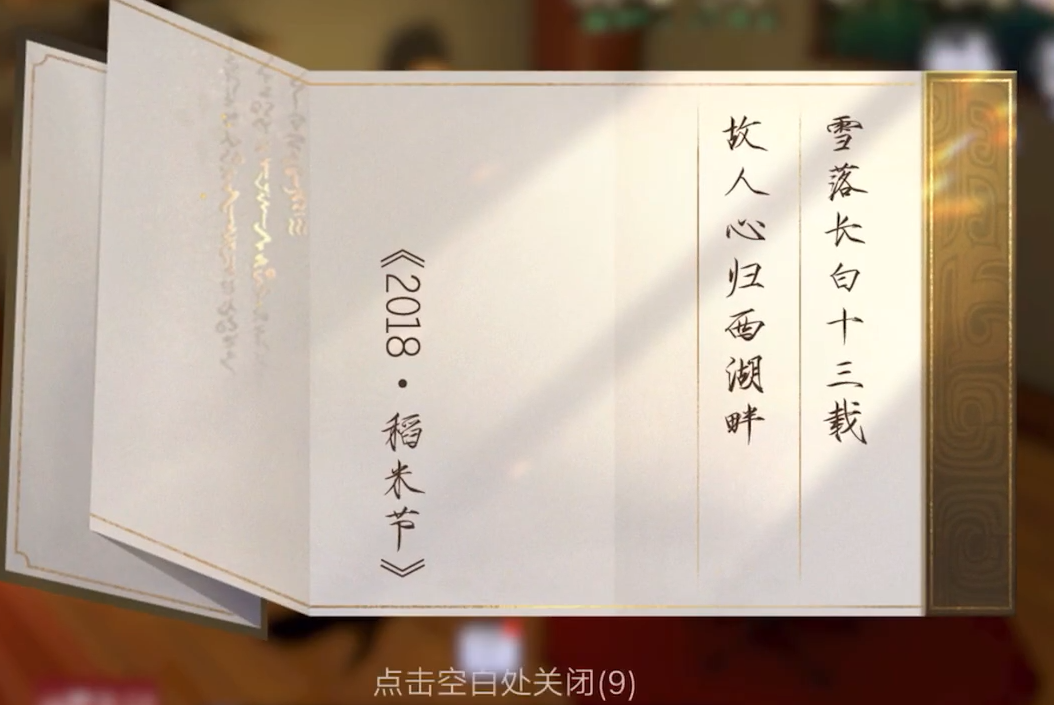 雪落长白十三载
故人心归西湖畔
《2018·稻米节》
点击空白处关闭(9)